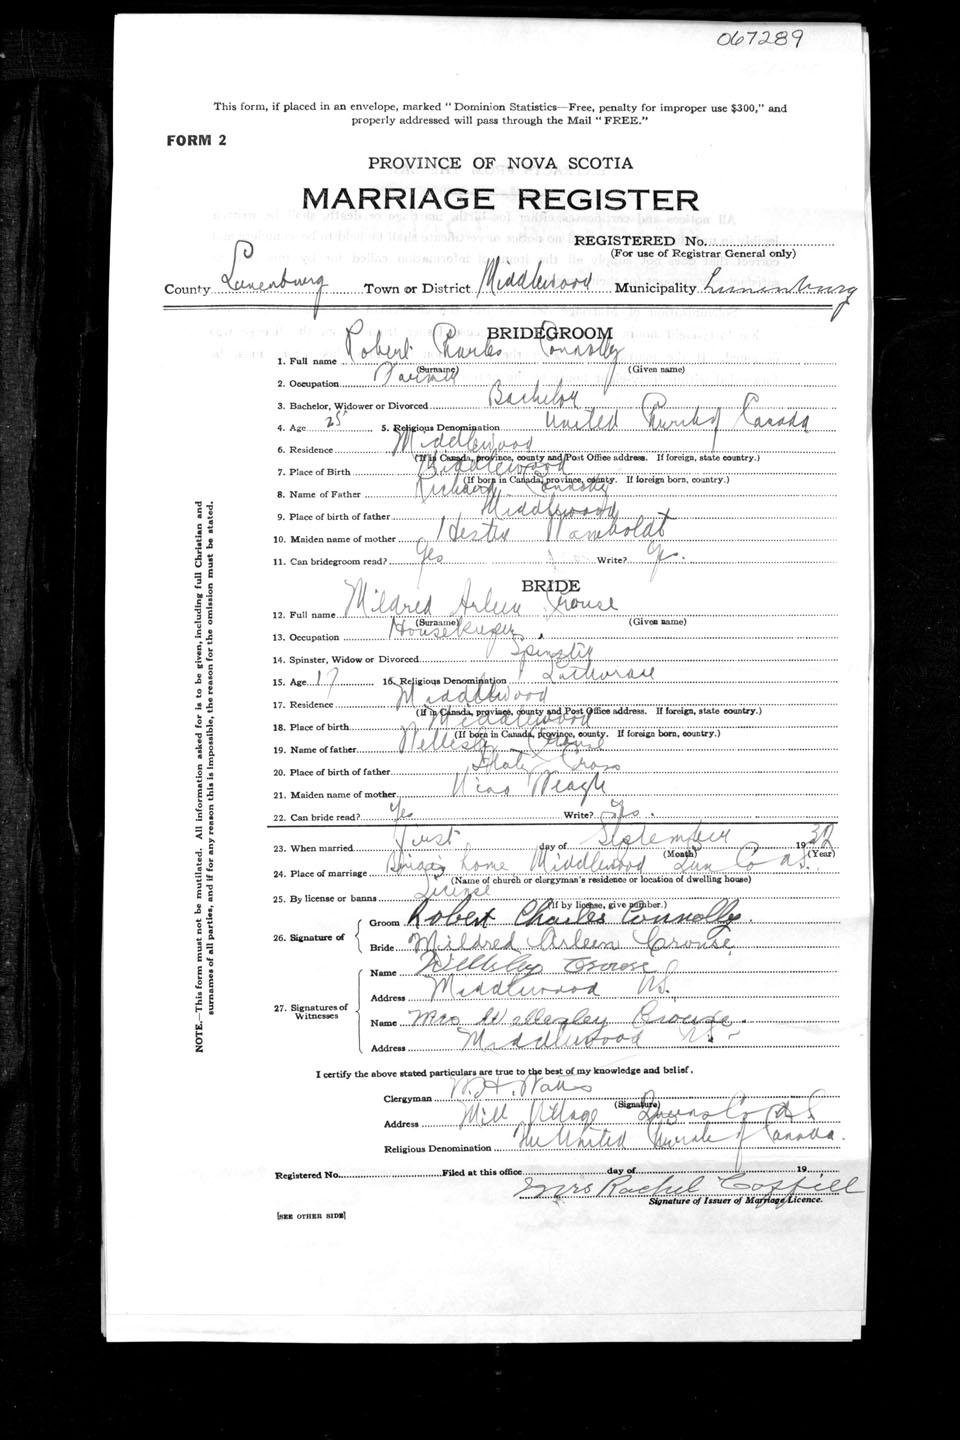 067289
This form, if placed in an envelope, marked " Dominion Statistics—Free, penalty for improper use $300," and
properly addressed will pass through the Mail " FREE."
FORM 2
PROVINCE OF NOVA SCOTIA
MARRIAGE REGISTER
REGISTERED No.
(For use of Registrar General only)
County Lunenburg Town or District Middlewood Municipality Lunenburg
BRIDEGROOM
1. Full name Robert Charles Connolly
(Surname) (Given name)
2. Occupation Farmer
3. Bachelor, Widower or Divorced Bachelor
4. Age 25 5. Religious Denomination United Church of Canada
6. Residence Middlewood
(If in Canada, province, county and Post Office address. If foreign, state country.)
7. Place of Birth Middlewood
(If born in Canada, province, county. If foreign born, country.)
8. Name of Father Richard Connolly
9. Place of birth of father Middlewood
10. Maiden name of mother Hester Wamboldt
11. Can bridegroom read? Yes Write? Yes.
BRIDE
12. Full name Mildred Arleen Crouse
(Surname) (Given name)
13. Occupation Housekeeper
14. Spinster, Widow or Divorced Spinster
15. Age 17 16. Religious Denomination Lutheran
17. Residence Middlewood
(If in Canada, province, county and Post Office address. If foreign, state country.)
18. Place of birth Middlewood
(If born in Canada, province, county. If foreign born, country.)
19. Name of father Wellesley Crouse
20. Place of birth of father
21. Maiden name of mother Veagh
22. Can bride read? Yes Write? Yes.
23. When married First day of September 1932
(Month) (Year)
24. Place of marriage home Middlewood Lun Co N.S.
(Name of church or clergyman's residence or location of dwelling house)
25. By license or banns License
(If by license, give number.)
26. Signature of Groom Robert Charles Connolly.
Bride Mildred Arleen Crouse
27. Signatures of Witnesses Name Wellesley Crouse
Address Middlewood N.S.
Name Mrs Wellesley Crouse.
Address Middlewood N.S.
I certify the above stated particulars are true to the best of my knowledge and belief.
Clergyman W. H. Watts
(Signature)
Address Mill Village Queens Co N.S.
Religious Denomination The United Church of Canada.
Registered No. Filed at this office day of 19
Mrs Rachel
Signature of Issuer of Marriage Licence.
[SEE OTHER SIDE]
NOTE.—This form must not be mutilated. All information asked for is to be given, including full Christian and
surnames of all parties, and if for any reason this is impossible, the reason for the omission must be stated.